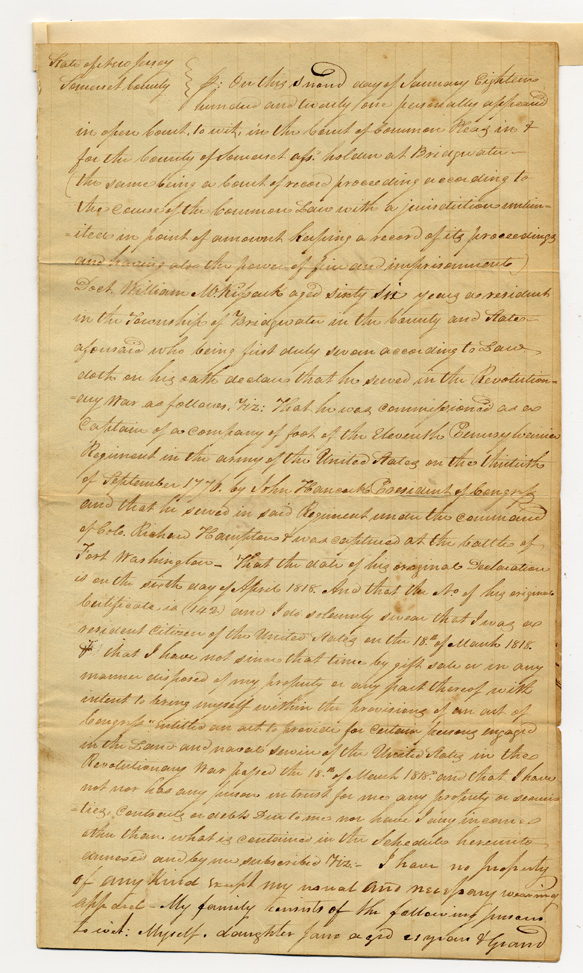 State of New Jersey
Somerset County
ss: On this second day of January Eighteen
hundred and twenty one personally appeared
in open Court, to wit, in the Court of Common Pleas in &
for the County of Somerset afs. holden at Bridgwater -
(the same being a Court of record proceeding according to
the Course of the Common Law with a jurisdiction unlim-
-ited in point of amount keeping a record of its proceedings
and having also the power of fine and imprisonment)
Doct. William McKissack aged sixty six years a resident
in the Township of Bridgwater in the County and State
aforesaid who being first duly sworn according to Law
doth on his oath declare that he served in the Revolution-
-ary War as follows, Viz: That he was commissioned as a
Captain of a company of foot of the Eleventh Pennsylvania
Regiment in the army of the United States on the thirtieth
of September 1776. by John Hancock President of Congress
and that he served in said Regiment under the command
of Colo. Richard Hampton & was captured at the battle of
Fort Washington - That the date of his original Declaration
is on the sixth day of April 1818. And that the No. of his original
Certificate is (142) and I do solemnly swear that I was a
resident Citizen of the United States on the 18th of March 1818.
& that I have not since that time by gift sale or in any
manner disposed of my property or any part thereof with
intent to bring myself within the provisions of an act of
Congress entitled an act to provide for certain persons engaged
in the Land and naval service of the United States in the
Revolutionary War passed the 18th of March 1818. and that I have
not nor has any person in trust for me any property or securi-
-ties, Contracts or debts Due to me nor have I any income
other than what is contained in the Schedule hereunto
annexed and by me subscribed Viz - I have no property
of any kind Except my usual and necessary wearing
apparel - My family consists of the following persons
to wit: Myself, daughter Jane aged years & Grand